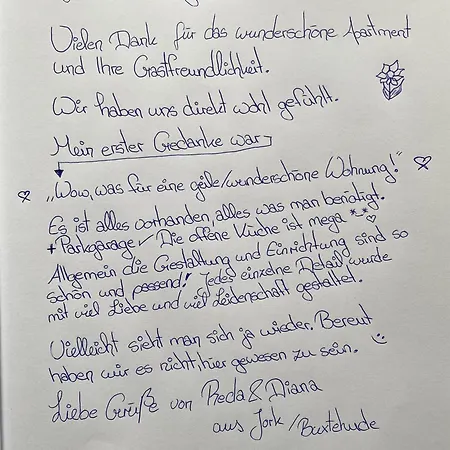 Vielen Dank für das wunderschöne Apartment
und Ihre Gastfreundlichkeit.
Wir haben uns direkt wohl gefühlt.
Mein erster Gedanke war
„Wow, was für eine geile/wunderschöne Wohnung!“
Es ist alles vorhanden, alles was man benötigt.
+ Parkgarage ✓ Die offene Küche ist mega *_* ♡
Allgemein die Gestaltung und Einrichtung sind so
schön und passend! Jedes einzelne Detail wurde
mit viel Liebe und viel Leidenschaft gestaltet.
Vielleicht sieht man sich ja wieder. Bereut
haben wir es nicht, hier gewesen zu sein. :)
Liebe Grüße von Reda & Diana
aus Jork / Buxtehude